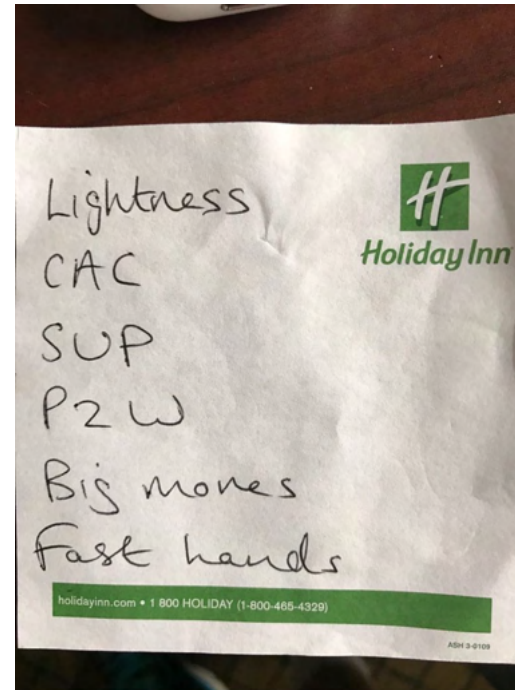 Lightness
Holiday Inn
CAC
SUP
P2W
Big moves
Fast hands
holidayinn.com • 1 800 HOLIDAY (1-800-465-4329)
ASH 3-0109